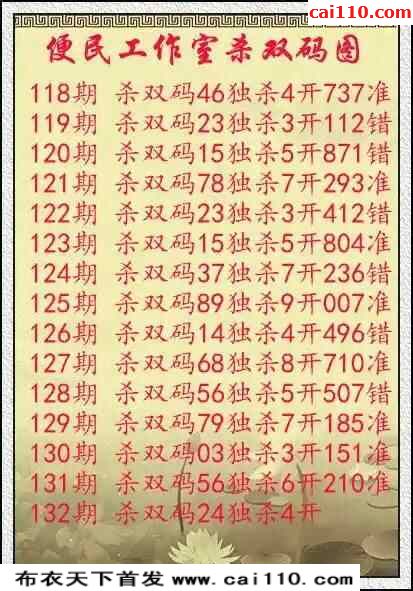 cai110.com
便民工作室杀双码图
118期 杀双码46独杀4开737准
119期 杀双码23独杀3开112错
120期 杀双码15独杀5开871错
121期 杀双码78独杀7开293准
122期 杀双码23独杀3开412错
123期 杀双码15独杀5开804准
124期 杀双码37独杀7开236错
125期 杀双码89独杀9开007准
126期 杀双码14独杀4开496错
127期 杀双码68独杀8开710准
128期 杀双码56独杀5开507错
129期 杀双码79独杀7开185准
130期 杀双码03独杀3开151准
131期 杀双码56独杀6开210准
132期 杀双码24独杀4开
布衣天下首发 www.cai110.com